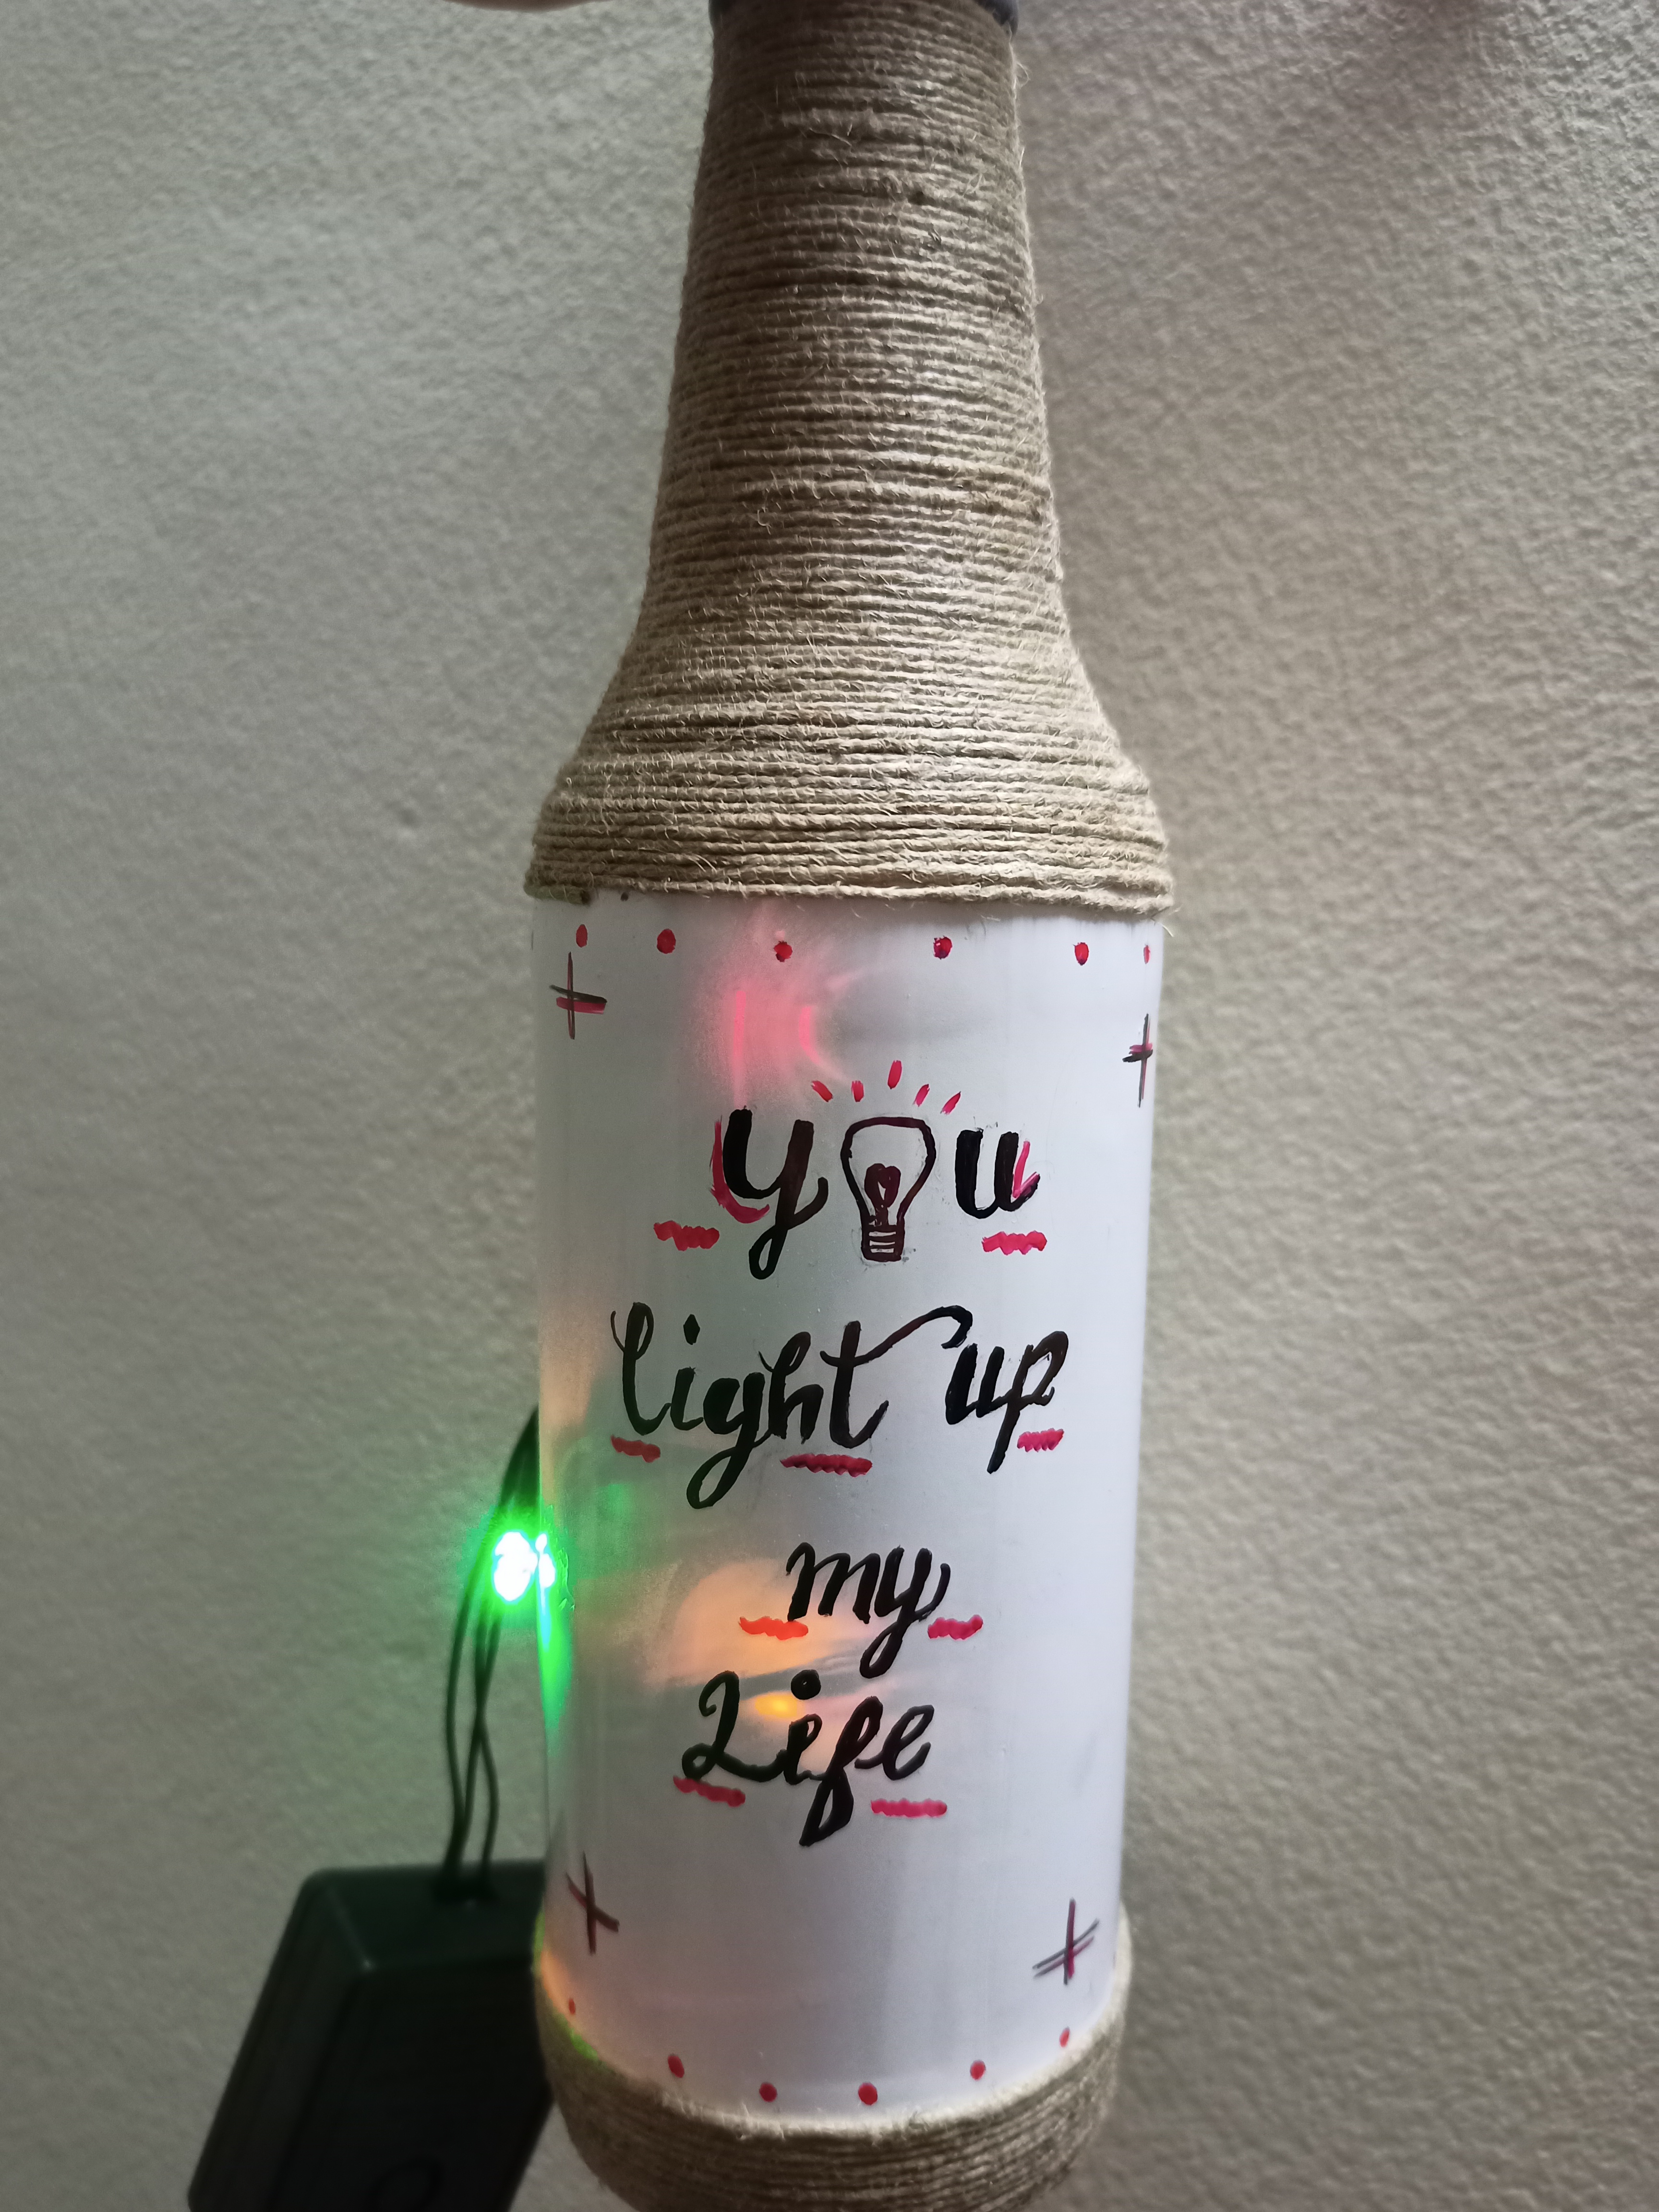 you
light up
my
Life